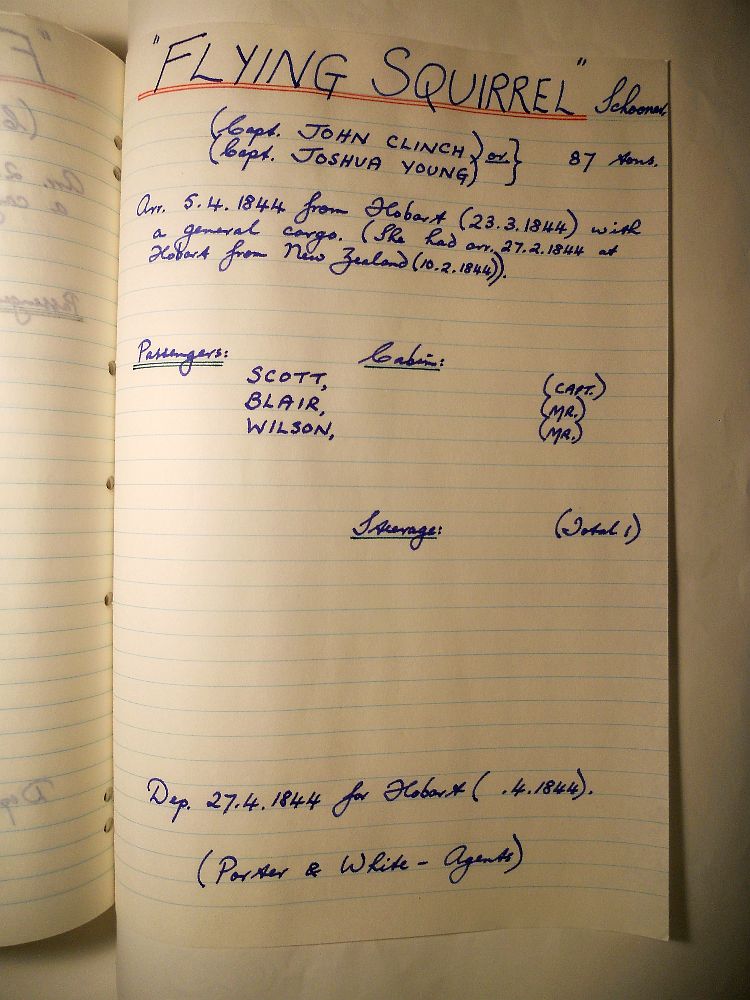 "FLYING SQUIRREL" Schooner,
(Capt. JOHN CLINCH) or } 87 tons.
(Capt. JOSHUA YOUNG)
Arr. 5.4.1844 from Hobart (23.3.1844) with
a general cargo. (She had arr. 27.2.1844 at
Hobart from New Zealand (10.2.1844)).
Passengers: Cabin:
SCOTT, (CAPT.)
BLAIR, (MR.)
WILSON, (MR.)
Steerage: (Total 1)
Dep. 27.4.1844 for Hobart ( .4.1844).
(Porter & White - Agents)